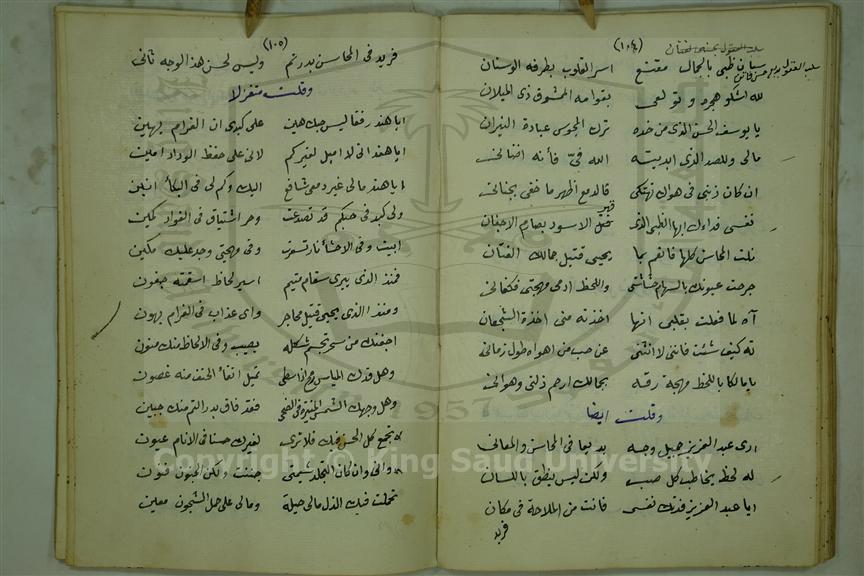 (١٠٤)
سلب العقول بحسنه الفتان
سلب العقول بديع حسن فاتن
ظبي بالجمال مقنع اسر القلوب بطرفه الوسنان
لله اشكو هجره وتولعي بقوامه الممشوق ذي الميلان
يا يوسف الحسن الذي من خده ترك المجوس عبادة النيران
مالي وللصد الذي ابديته الله في فانه افناني
ان كان ذنبي في هواك تهتكي فالدمع اظهر ما خفى بجناني
نفسي فداءك ايها الظبي الذي قهر الاسود بصارم الاجفان
نلت المحاسن كلها فانعم بما يحيي قتيل جمالك الفتان
جرحت عيونك بالسهام حشاشتي واللحظ ادمى مهجتي فكفاني
آه لما فعلت بقلبي انها اخذته مني اخذة الشجعان
ته كيف شئت فانني لا انثني عن حب من اهواه طول زماني
يا مالكا باللحظ مهجة رقه بجمالك ارحم ذلتي وهواني
وقلت ايضا
ارى عبد العزيز جميل وجه بديعا في المحاسن والمعاني
له لحظ يخاطب كل صب ولكن ليس ينطق باللسان
ايا عبد العزيز فدتك نفسي فانت من الملاحة في مكان
فريد
(١٠٥)
فريد في المحاسن بدر تم وليس لحسن هذا الوجه ثاني
وقلت متغزلا
ايا هند رفقا ليس حبك هين على كبدي ان الغرام يهين
ايا هند اني لا اميل لغيركم لاني على حفظ الوداد امين
ايا هند مالي غير دمعي شافع اليك وكم لي في البكاء انين
ولي كبد في حبكم قد تصدعت وحر اشتياق في الفواد كمين
ابيت وفي الاحشاء نار تسعرت وفي مهجتي وجد عليك مكين
فمنذ الذي يبري سقام متيم اسير لحاظ اسقمته جفون
ومنذا الذي يحيي قتيل محاجر واي عذاب في الغرام يهون
اجفنك من سحر تجسم شكله يصيب وفي الالحاظ منك منون
وهل قدك المياس رمح اذا سطى تميل انثناء الحتف منه غصون
وهل وجهك الشمس المنيرة في الضحى فقد فاق بدر التم منك جبين
تجمع كل الحسن فيك فلا ترى لغيرك حسنا في الانام عيون
واني وان كان التجلد شيمتي جننت ولكن الجنون فنون
تحملت فيك الذل مالي حيلة ومالي على حمل الشجون معين
Copyright © King Saud University
1957